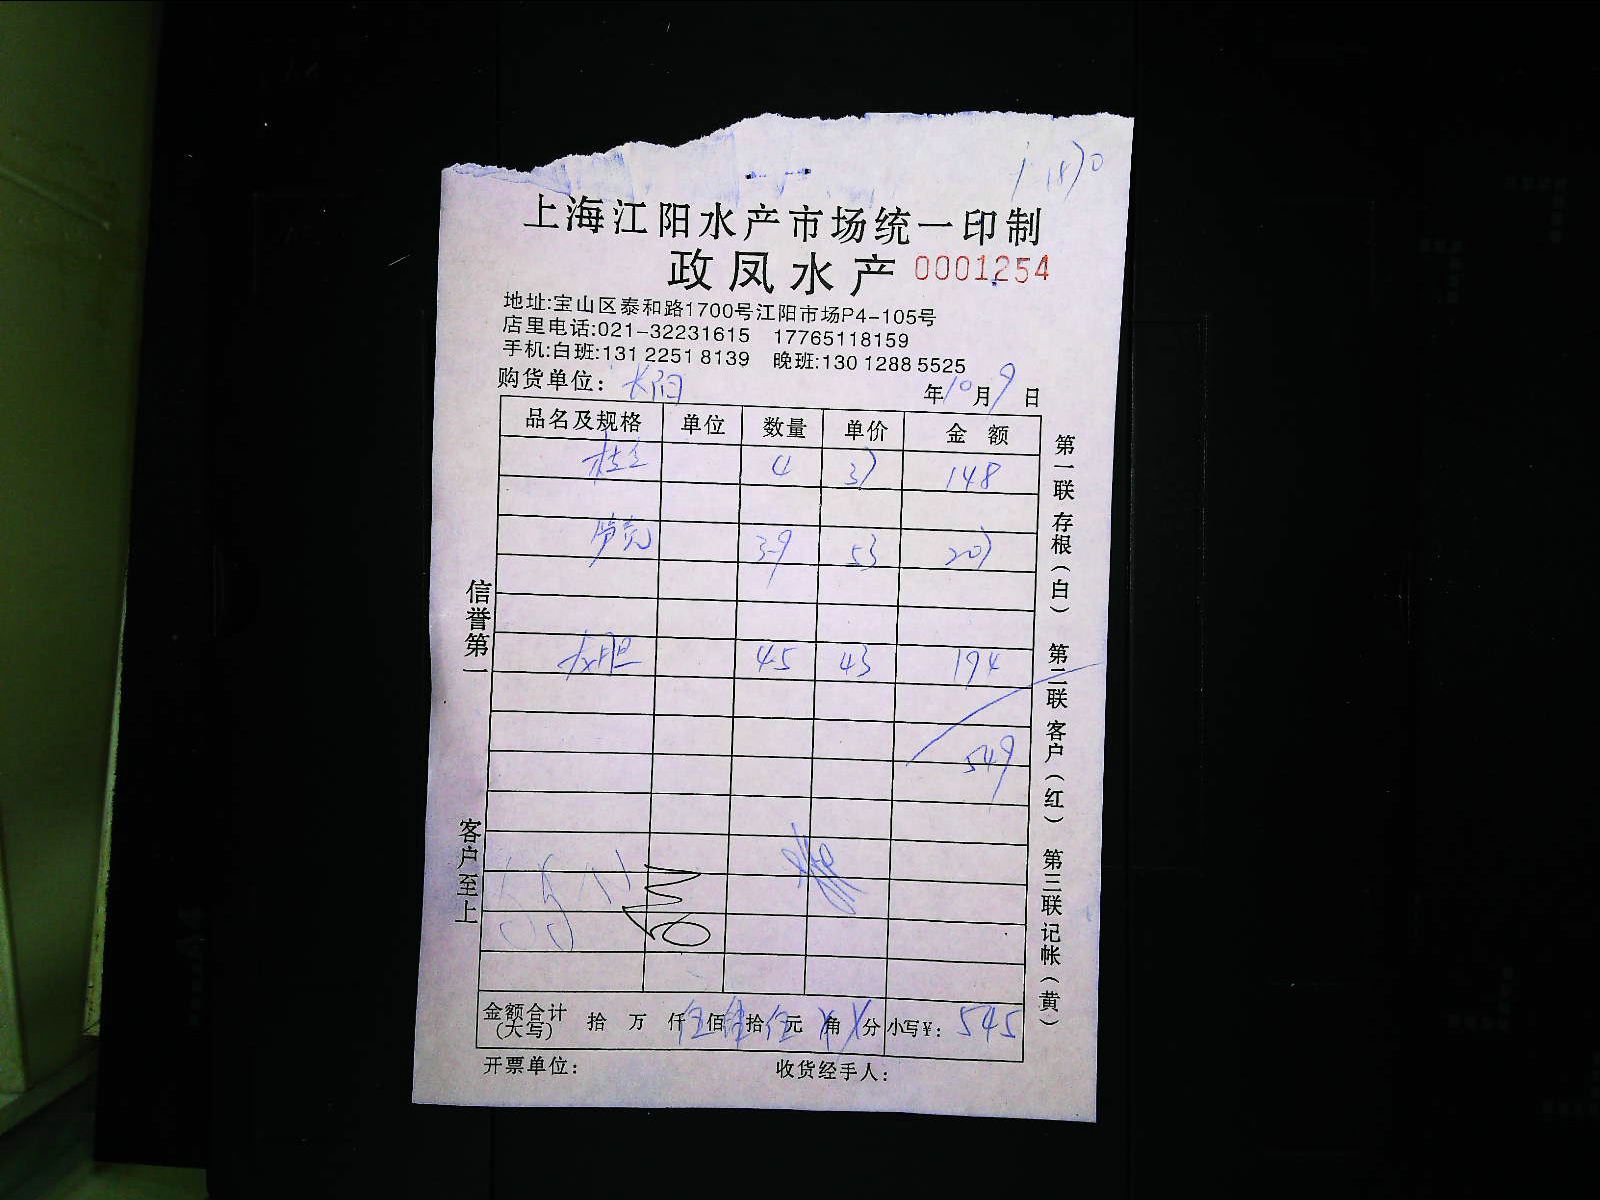 上海江阳水产市场统一印制
政凤水产 0001254
地址:宝山区泰和路1700号江阳市场P4-105号
店里电话:021-32231615 17765118159
手机:白班:131 2251 8139 晚班:130 1288 5525
购货单位: 年10月9日
品名及规格 单位 数量 单价 金额
4 37 148
39 53 207
45 43 194
549
金额合计(大写) 拾 万 仟伍佰肆拾伍元 角 分 小写¥: 545
开票单位: 收货经手人:
信誉第一 客户至上
第一联存根(白) 第二联客户(红) 第三联记帐(黄)